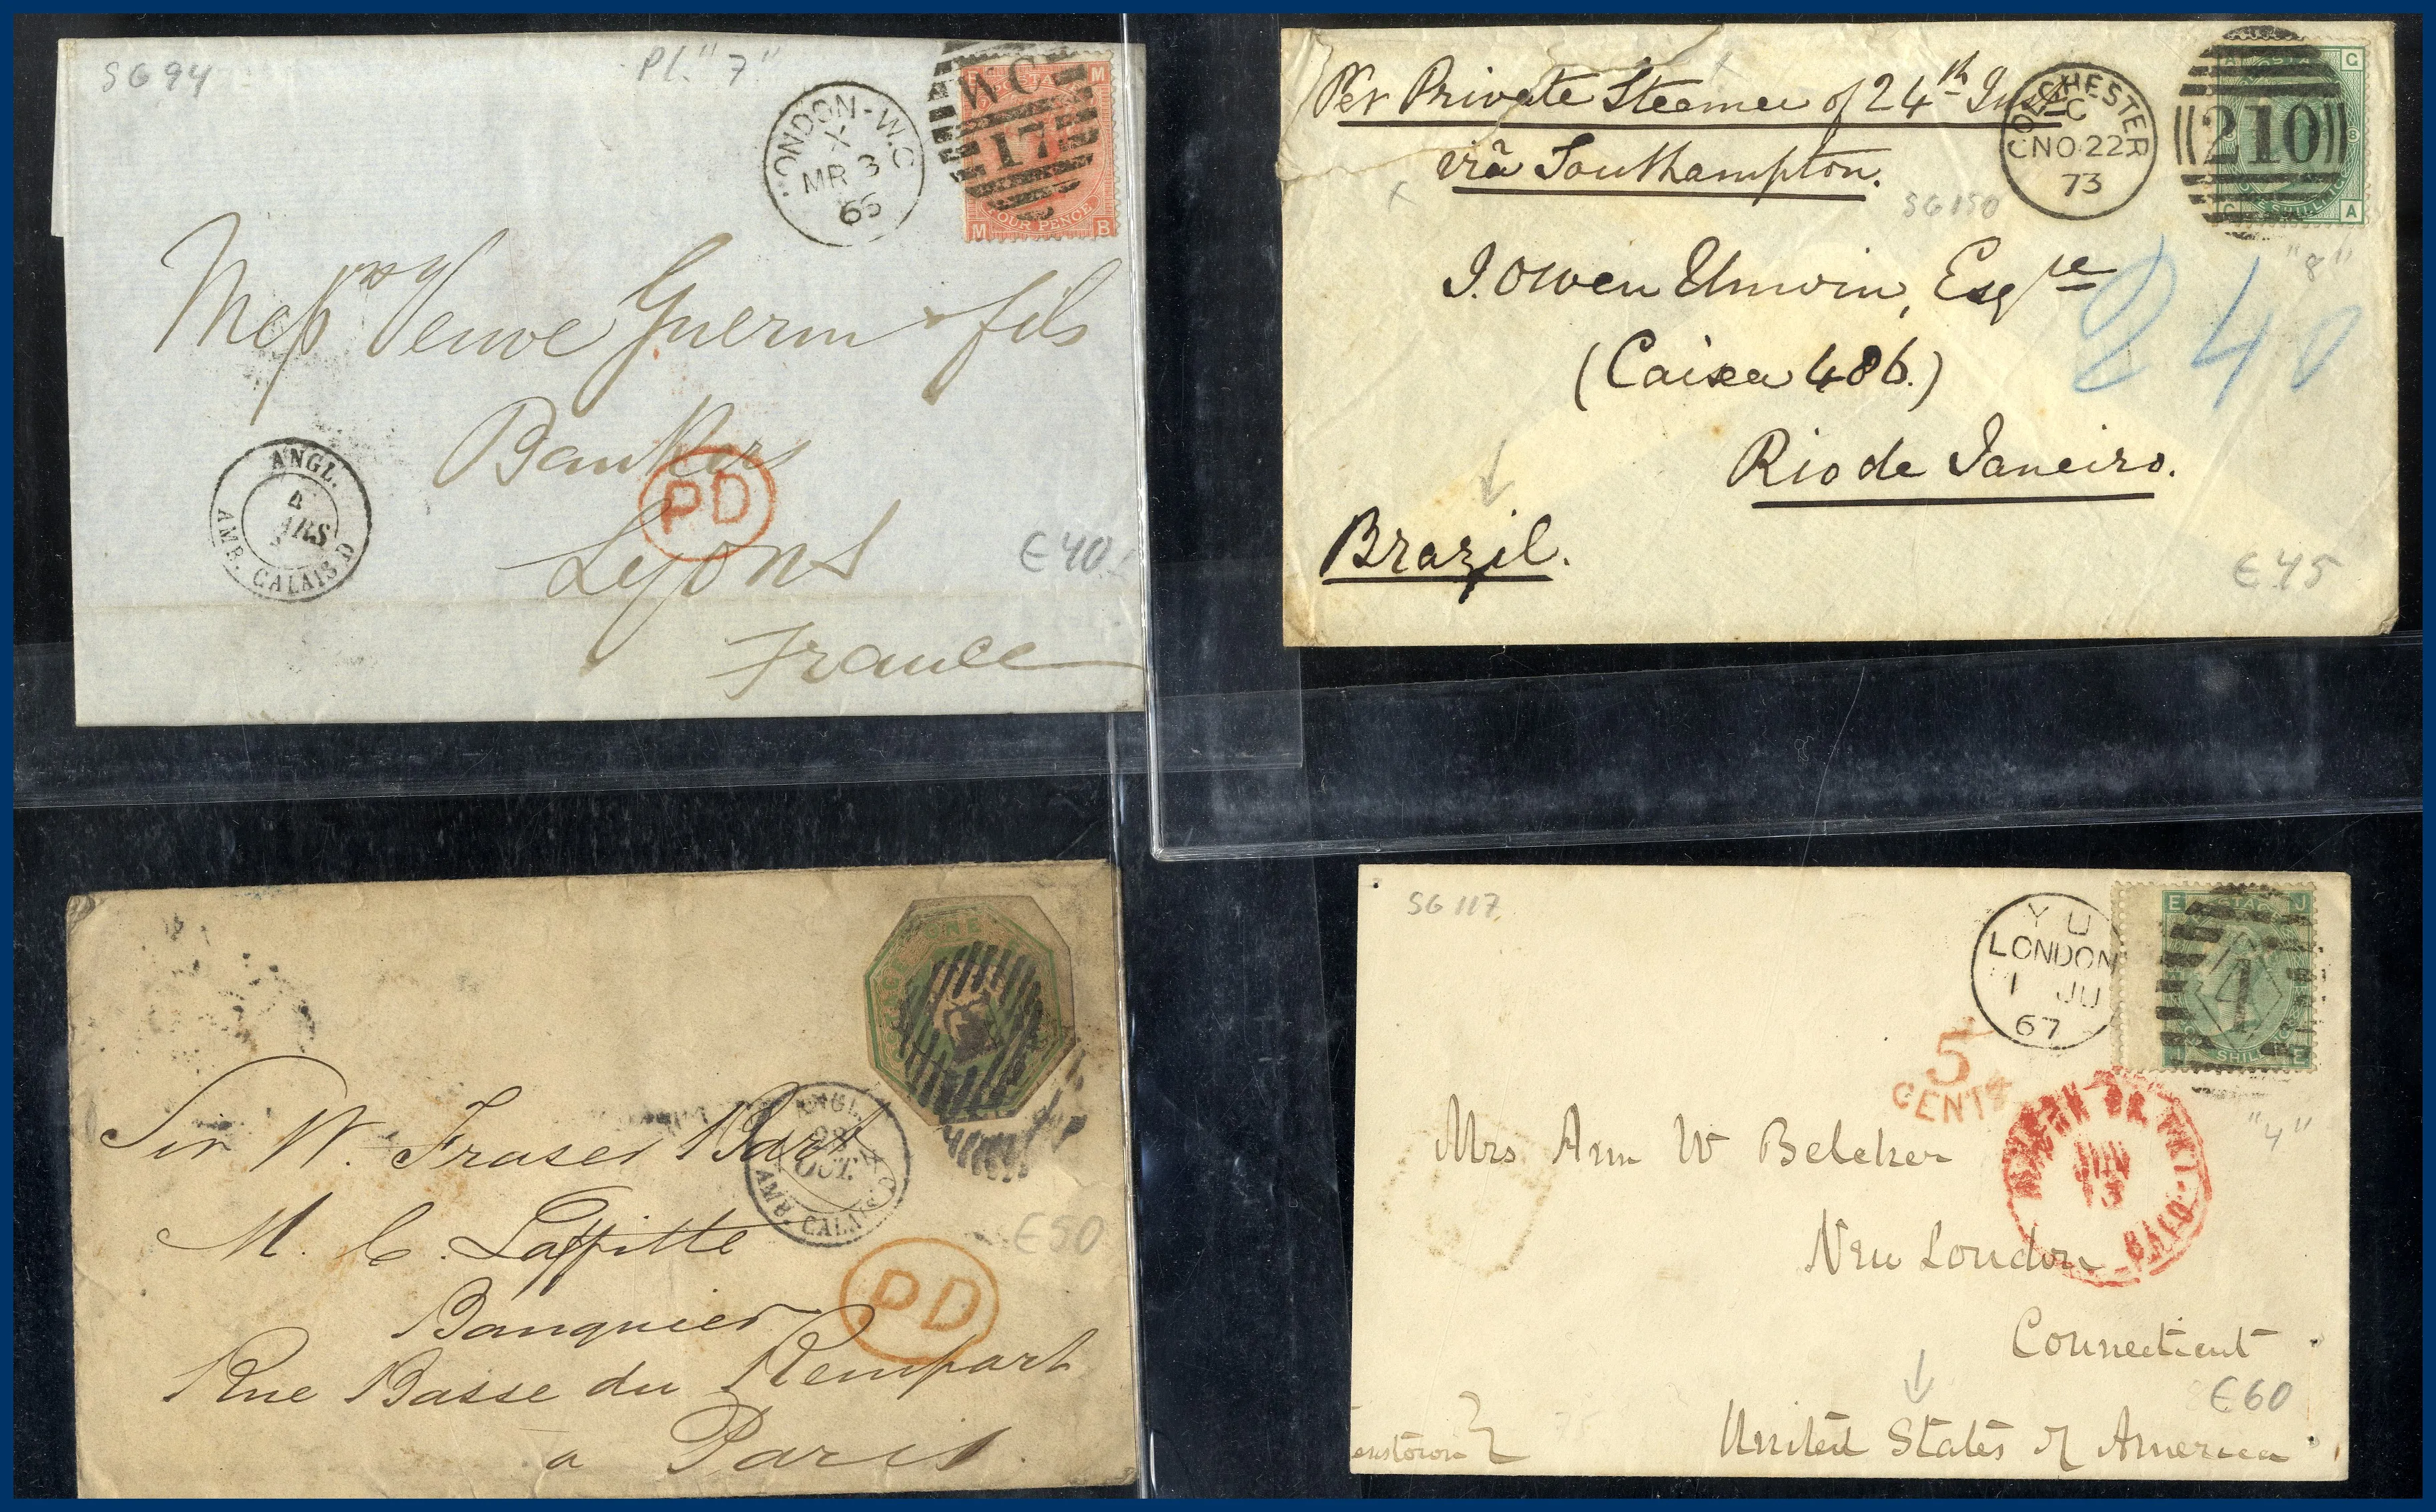 SG 94
Pl. "7"
LONDON-W.C
X
MR 3
66
WC
17
M
FOUR PENCE
M B
Messrs Veuve Guerin & fils
Bankers
PD
Lyons
France
ANGL.
4
MARS
AMB. CALAIS.D
€40.
Per Private Steamer of 24th Inst
viâ Southampton.
COLCHESTER
C
NO 22
73
210
G
8
ONE SHILLING
G A
SG 150
"8"
J. Owen Unwin, Esqre
240
(Caixa 486.)
Rio de Janeiro.
Brazil.
€45
ONE
ANGL.
28
OCT.
AMB. CALAIS
Sir W. Fraser Bart
M. C. Laffitte
€50
PD
Banquier
Rue Basse du Rempart
a Paris.
SG 117
Y U
LONDON
1 JU
67
E J
4
SHILL
J E
"4"
5
CENTS
JUN
13
PAID
Mrs Ann W Belcher
New London
Connecticut
€60
United States of America